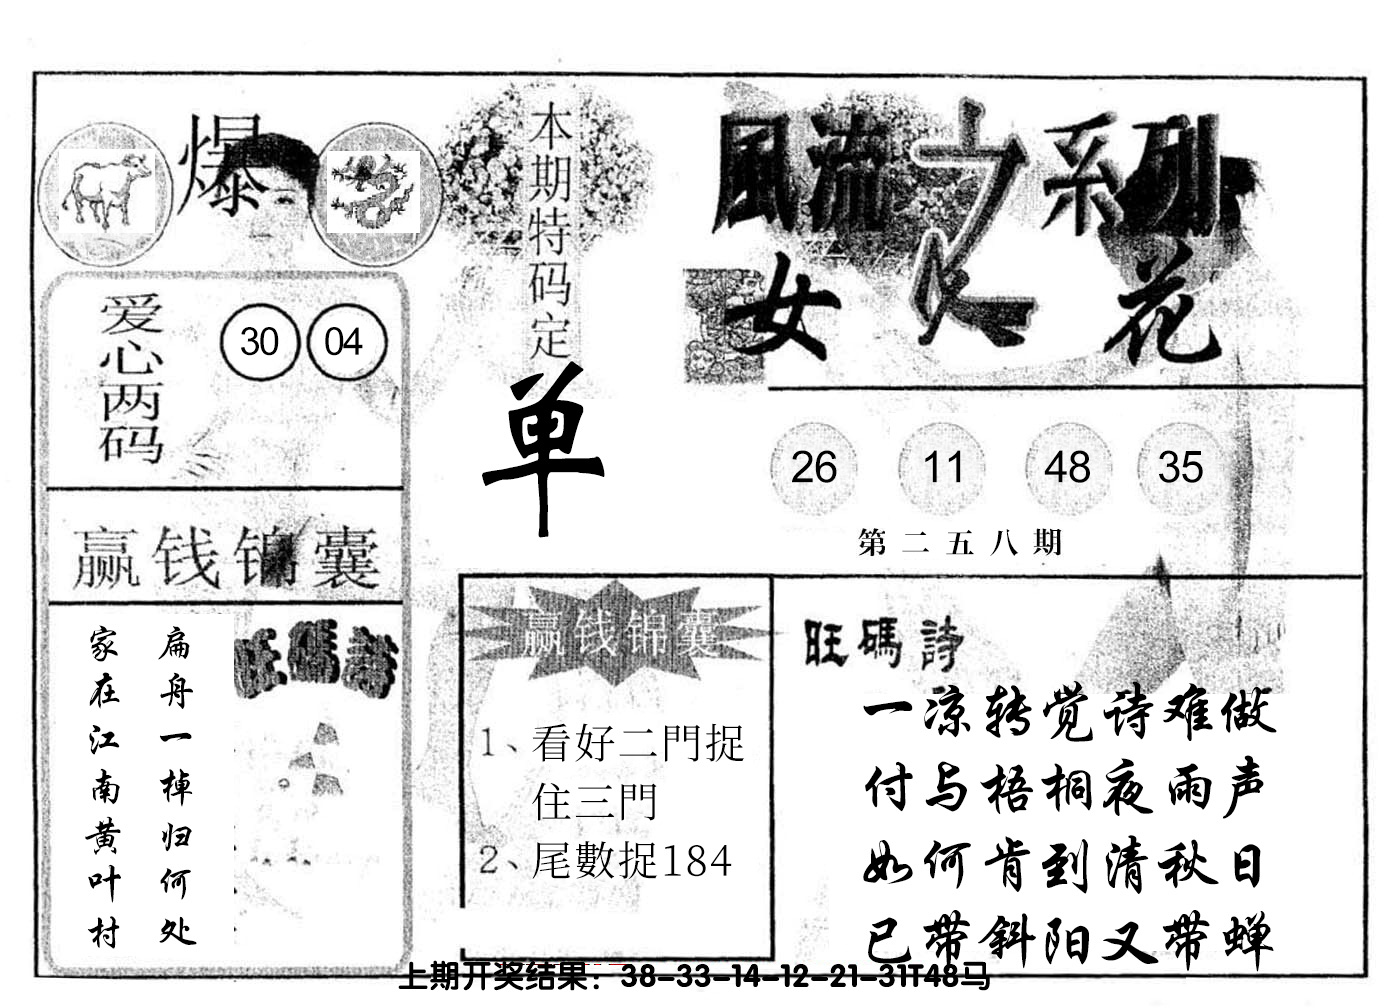 爆
本期特码定
单
風流之系列
女人花
爱心两码
30 04
26 11 48 35
第二五八期
赢钱锦囊
扁舟一棹归何处
家在江南黄叶村
旺碼詩
赢钱锦囊
1、看好二門捉
住三門
2、尾數捉184
旺碼詩
一凉转觉诗难做
付与梧桐夜雨声
如何肯到清秋日
已带斜阳又带蝉
上期开奖结果：38-33-14-12-21-31T48马